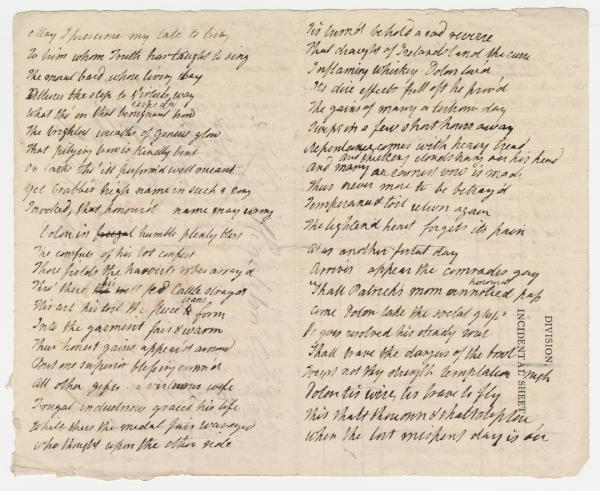 May I presume my tale to bring
To him whom Truth has taught to sing
The moral bard, whose living way
Allures the step to Virtues way
What tho on that benignant brow
The brightest of genius glow
That pitying brow is kindly bent
On task tho' ill perform'd well meant
Yet Crabbe's high name in such a
Invoked, that honour'd name may
Colon in frugal humble plenty blest
The comforts of his lot confest
Those fields the harvests robes array'd
Thro' there his well fed Cattle stray'd
His art his toil the fleece trans form
Into the garment fair & warm
Thus honest gains appear'd around
But one superior blessing crown'd
All other gifts a virtuous wife
Frugal industrious graced his life
While thus the medal fair was
who thought upon the other side
Tis turn'd behold a sad reverse
That draught of Irelands land the curse
Inflaming whiskey Dolon lov'd
Its dire effects full oft he prov'd
The gains of many a toilsom day
in a few short hours away
Repentance comes with heavy head
And clouds hang oer his head
And many an earnest vow is made
Thus never more to be betray'd
Temperance & toil return again
The lightend heart forgets its pain
another fatal day
Arrives appear the comrades gay
Shall Patrick's morn honoured pass
Come Dolon take the social glass
He goes resolved his steady soul
Shall brave the dangers of the bowl
Trust not thy strength temptation nigh
Dolon tis wise, tis brave to fly
This shalt thou own & shalt deplore
When the lost mispent day is oer
DIVISION
INCIDENTAL SHEET